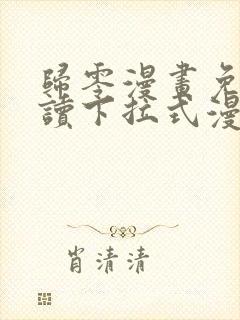 歸零漫畫免
讀下拉式漫
肖清清